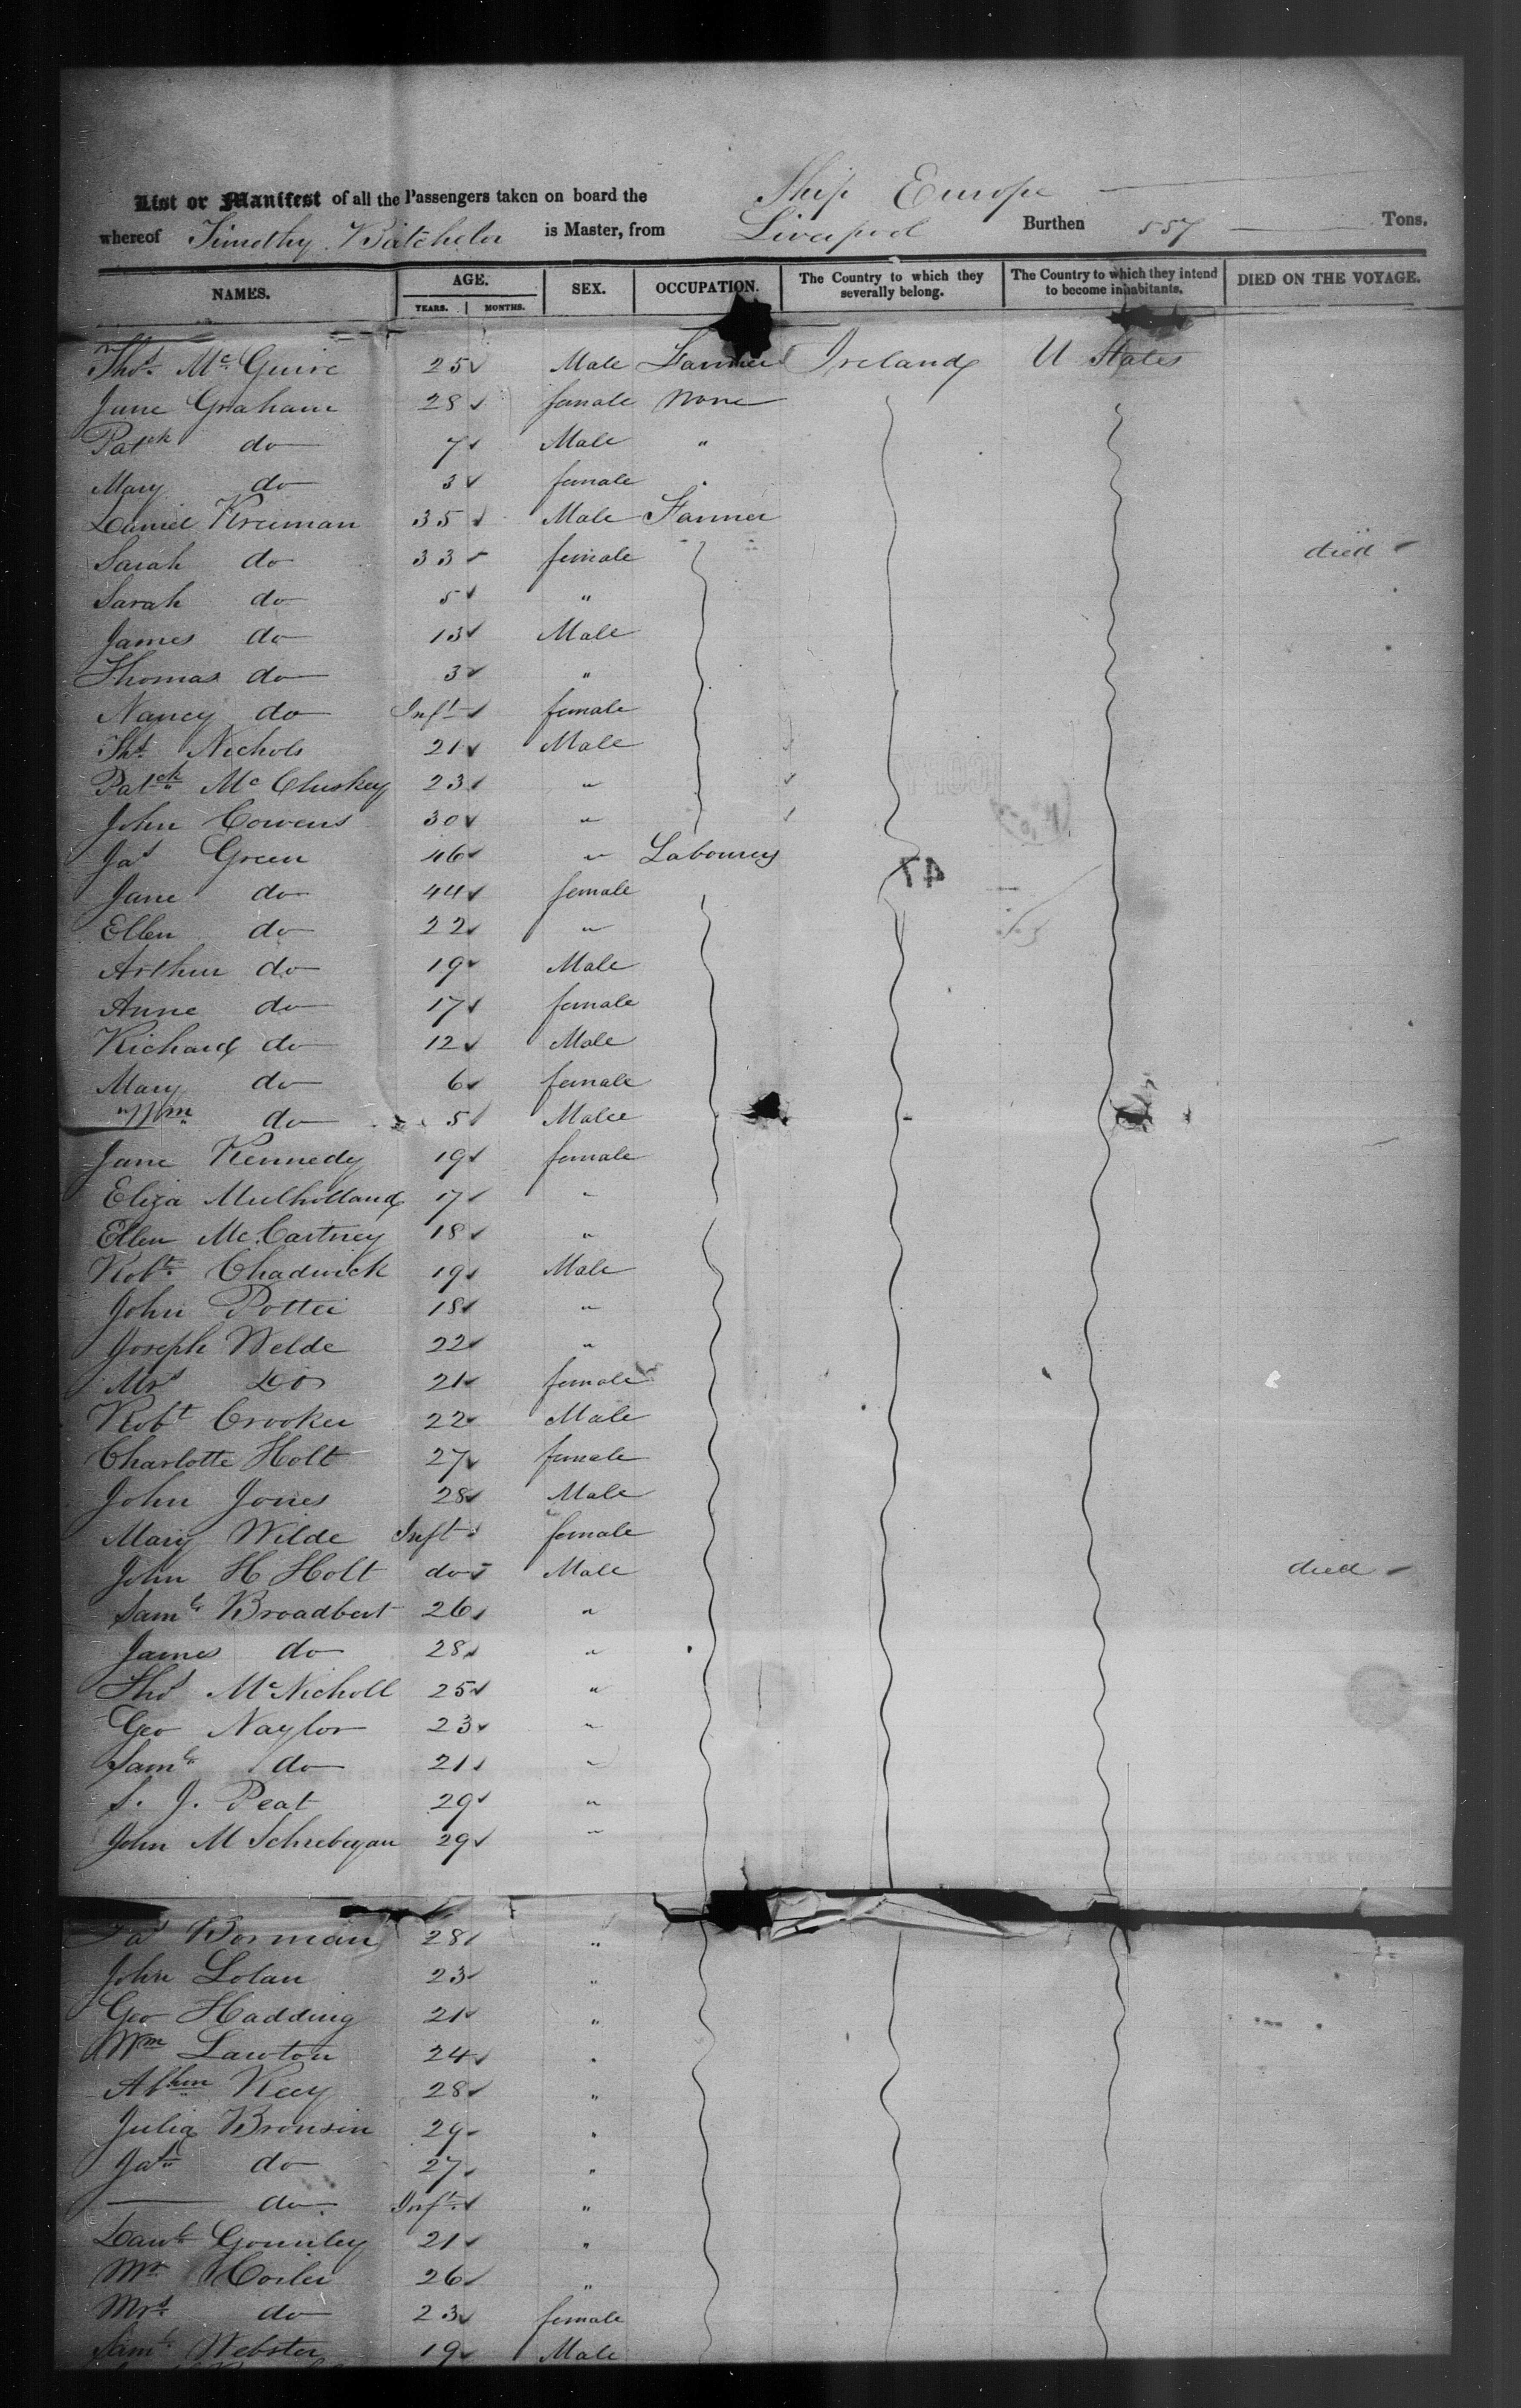 List or Manifest of all the Passengers taken on board the Ship Europe
whereof Timothy Batchelor is Master, from Liverpool Burthen 557 Tons.
NAMES. AGE. SEX. OCCUPATION. The Country to which they severally belong. The Country to which they intend to become inhabitants. DIED ON THE VOYAGE.
YEARS. MONTHS.
Thos. Mc Guire 25 Male Farmer Ireland U States
Jane Graham 28 female None
Patck do 7 Male "
Mary do 3 female
Daniel 35 Male Farmer
Sarah do 33 female died
Sarah do 5 "
James do 13 Male
Thomas do 3 "
Nancy do Inft female
Thos Nichols 21 Male
Patck Mc Cluskey 23 "
John Cowens 30 "
Jas Green 46 " Labourers
Jane do 44 female
Ellen do 22 "
Arthur do 19 Male
Anne do 17 female
Richard do 12 Male
Mary do 6 female
Wm do 5 Male
Jane Kennedy 19 female
Eliza Mulholland 17 "
Ellen Mc Cartney 18 "
Robt Chadwick 19 Male
John Potter 18 "
Joseph Welde 22 "
Mrs Do 21 female
Robt Crooker 22 Male
Charlotte Holt 27 female
John Jones 28 Male
Mary Wilde Inft female
John H Holt do Male died
Saml Broadbent 26 "
James do 28 "
Thos McNicholl 25 "
Geo Naylor 23 "
Saml do 21 "
S. J. Peat 29 "
John M 29 "
Jas Borman 28 "
John Lolan 23 "
Geo Hadding 21 "
Wm Lawton 24 "
Abhm Keey 28 "
Julia Bronsin 29 "
do 27 "
— do Inft "
Gourley 21 "
Mr 26 "
Mrs do 23 female
Saml Webster 19 Male
47